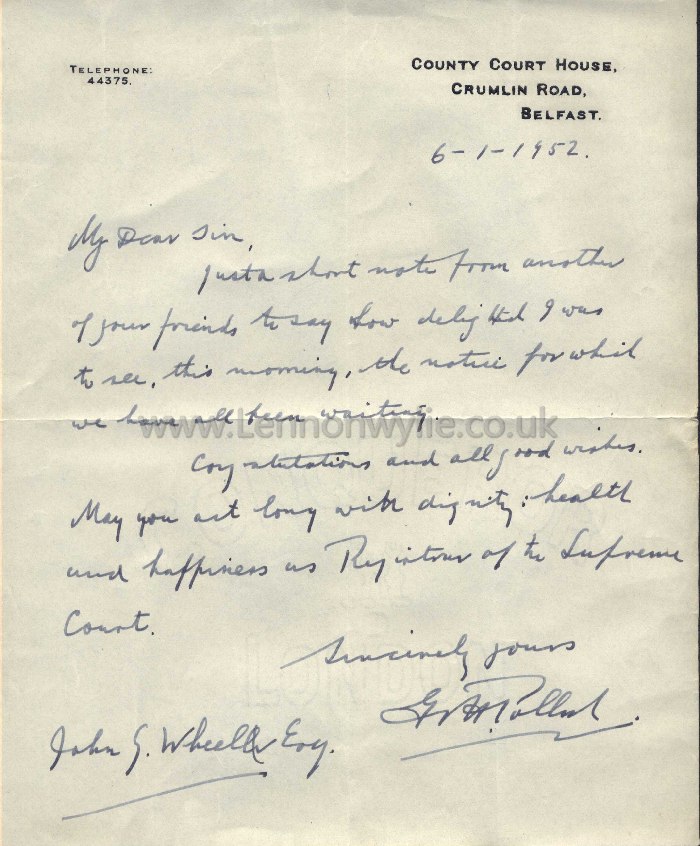 TELEPHONE:
44375.
COUNTY COURT HOUSE,
CRUMLIN ROAD,
BELFAST.
6-1-1952.
My Dear Sir,
Just a short note from another
of your friends to say how delighted I was
to see, this morning, the notice for which
we have all been waiting.
www.Lennonwylie.co.uk
Congratulations and all good wishes.
May you act long with dignity: health
and happiness as Registrar of the Supreme
Court.
Sincerely yours
Pollock.
John G. Wheeler Esq.
LONDON